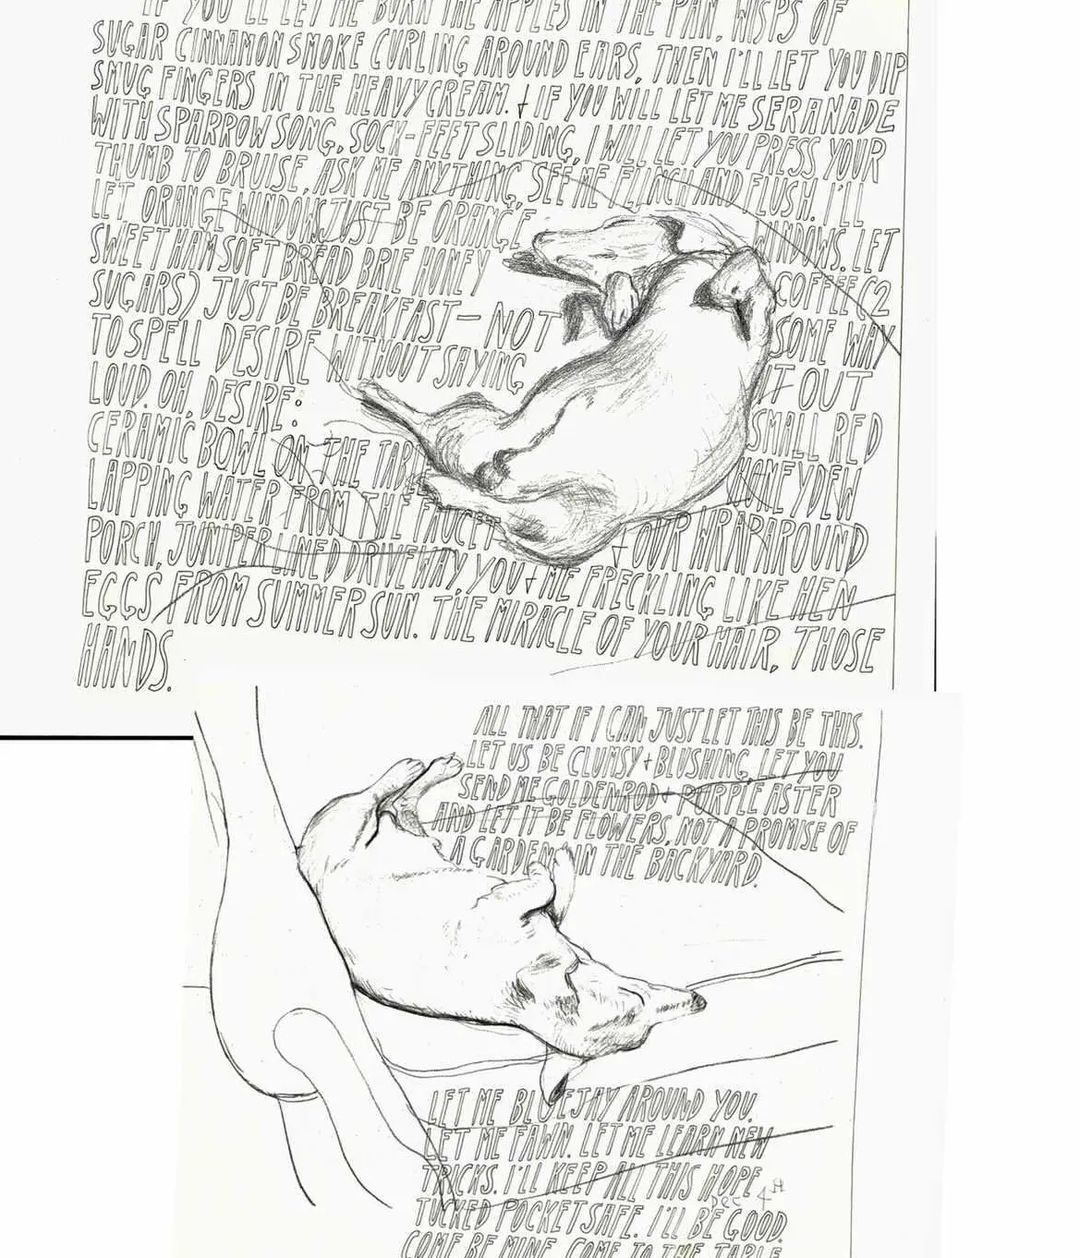 IF YOU'LL LET ME BURN THE APPLES IN THE PAN, WISPS OF
SUGAR CINNAMON SMOKE CURLING AROUND EARS, THEN I'LL LET YOU DIP
SMUG FINGERS IN THE HEAVY CREAM. + IF YOU WILL LET ME SERANADE
WITH SPARROW SONG, SOCK-FEET SLIDING, I WILL LET YOU PRESS YOUR
THUMB TO BRUISE, ASK ME ANYTHING, SEE ME FLINCH AND FLUSH. I'LL
LET ORANGE WINDOWS JUST BE ORANGE WINDOWS. LET
SWEET HAM SOFT BREAD BRIE HONEY COFFEE (2
SUGARS) JUST BE BREAKFAST — NOT SOME WAY
TO SPELL DESIRE WITHOUT SAYING IT OUT
LOUD. OH, DESIRE: SMALL RED
CERAMIC BOWL ON THE TABLE HONEYDEW
LAPPING WATER FROM THE FAUCET + OUR WRAPAROUND
PORCH, JUNIPER LINED DRIVEWAY, YOU + ME FRECKLING LIKE HEN
EGGS FROM SUMMER SUN. THE MIRACLE OF YOUR HAIR, THOSE
HANDS.
ALL THAT IF I CAN JUST LET THIS BE THIS.
LET US BE CLUMSY + BLUSHING, LET YOU
SEND ME GOLDENROD + PURPLE ASTER
AND LET IT BE FLOWERS, NOT A PROMISE OF
A GARDEN IN THE BACKYARD.
LET ME BLUEJAY AROUND YOU.
LET ME FAWN. LET ME LEARN NEW
TRICKS. I'LL KEEP ALL THIS HOPE
Dec 4th
TUCKED POCKET SAFE. I'LL BE GOOD.
COME BE MINE. COME TO THE TABLE